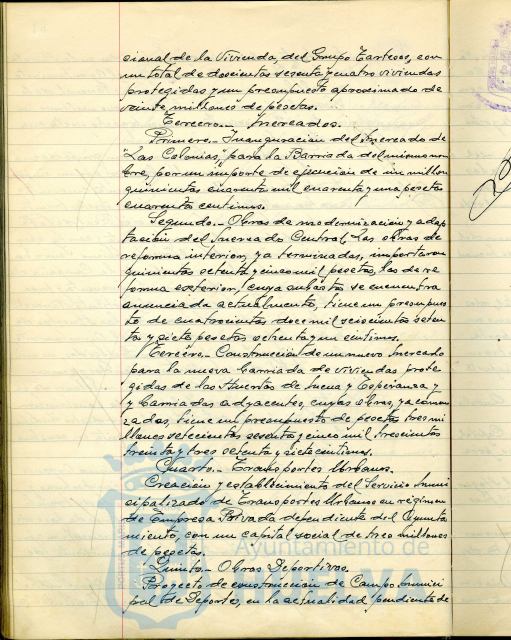 cional de la Vivienda, del Grupo Tartesos, con
un total de doscientas sesenta y cuatro viviendas
protegidas y un presupuesto aproximado de
veinte millones de pesetas.
Tercero.- Mercados.
Primero.- Inauguración del Mercado de
"Las Colonias", para la Barriada del mismo nom
bre, por un importe de ejecución de un millon
quinientas cuarenta mil cuarenta y una pesetas
cuarenta centimos.
Segundo.- Obras de modernización y adap
tación del Mercado Central, las obras de
reforma interior, ya terminadas, importaron
quinientas setenta y cinco mil pesetas, las de re
forma exterior, cuya subasta se encuentra
anunciada actualmente, tiene un presupues
to de cuatrocientas doce mil seiscientas seten
ta y siete pesetas ochenta y un centimos.
Tercero.- Construcción de un nuevo Mercado
para la nueva barriada de viviendas prote
gidas de las Huertas de Mena y Esperanza y
y Barriadas adyacentes, cuyas obras, ya comen
zadas, tiene un presupuesto de pesetas tres mi
llones setecientas sesenta y cinco mil trescientas
treinta y tres setenta y siete centimos.
Cuarto.- Transportes Urbanos.
Creación y establecimiento del Servicio Muni
cipalizado de Transportes Urbanos en régimen
de Empresa Privada dependiente del Ayunta
miento, con un capital social de tres millones
de pesetas.
Quinto.- Obras Deportivas.
Proyecto de construcción de Campo munici
pal de Deportes, en la actualidad pendiente de
Ayuntamiento de
HUELVA